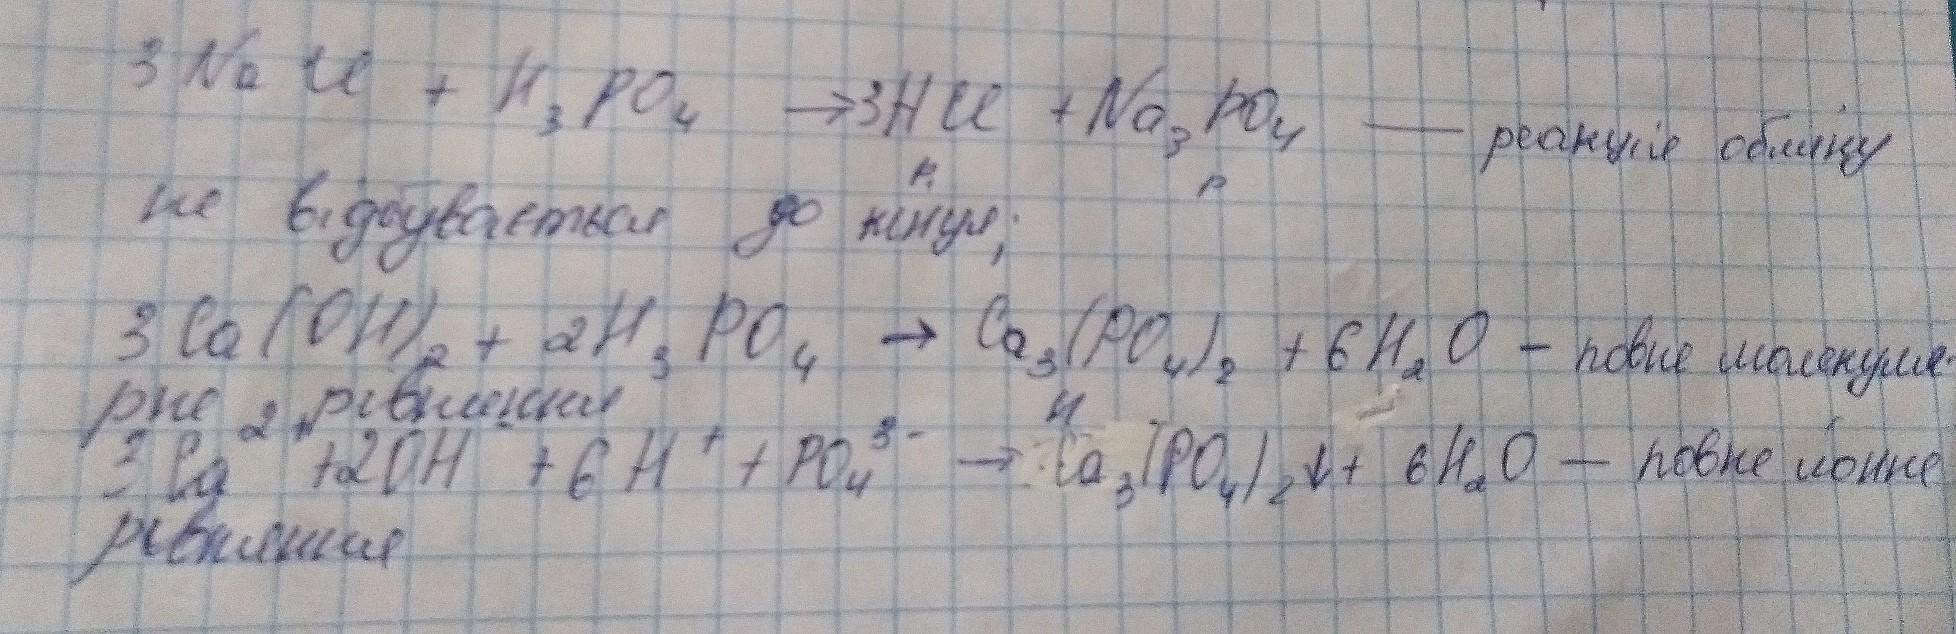 3NaCl + H₃PO₄ → 3HCl + Na₃PO₄ — реакція обміну
р р
не відбувається до кінця;
3Ca(OH)₂ + 2H₃PO₄ → Ca₃(PO₄)₂ + 6H₂O – повне молекуля-
рне рівняння н
3Ca²⁺ + 2OH + 6H⁺ + PO₄³⁻ → Ca₃(PO₄)₂↓ + 6H₂O — повне йонне
рівняння